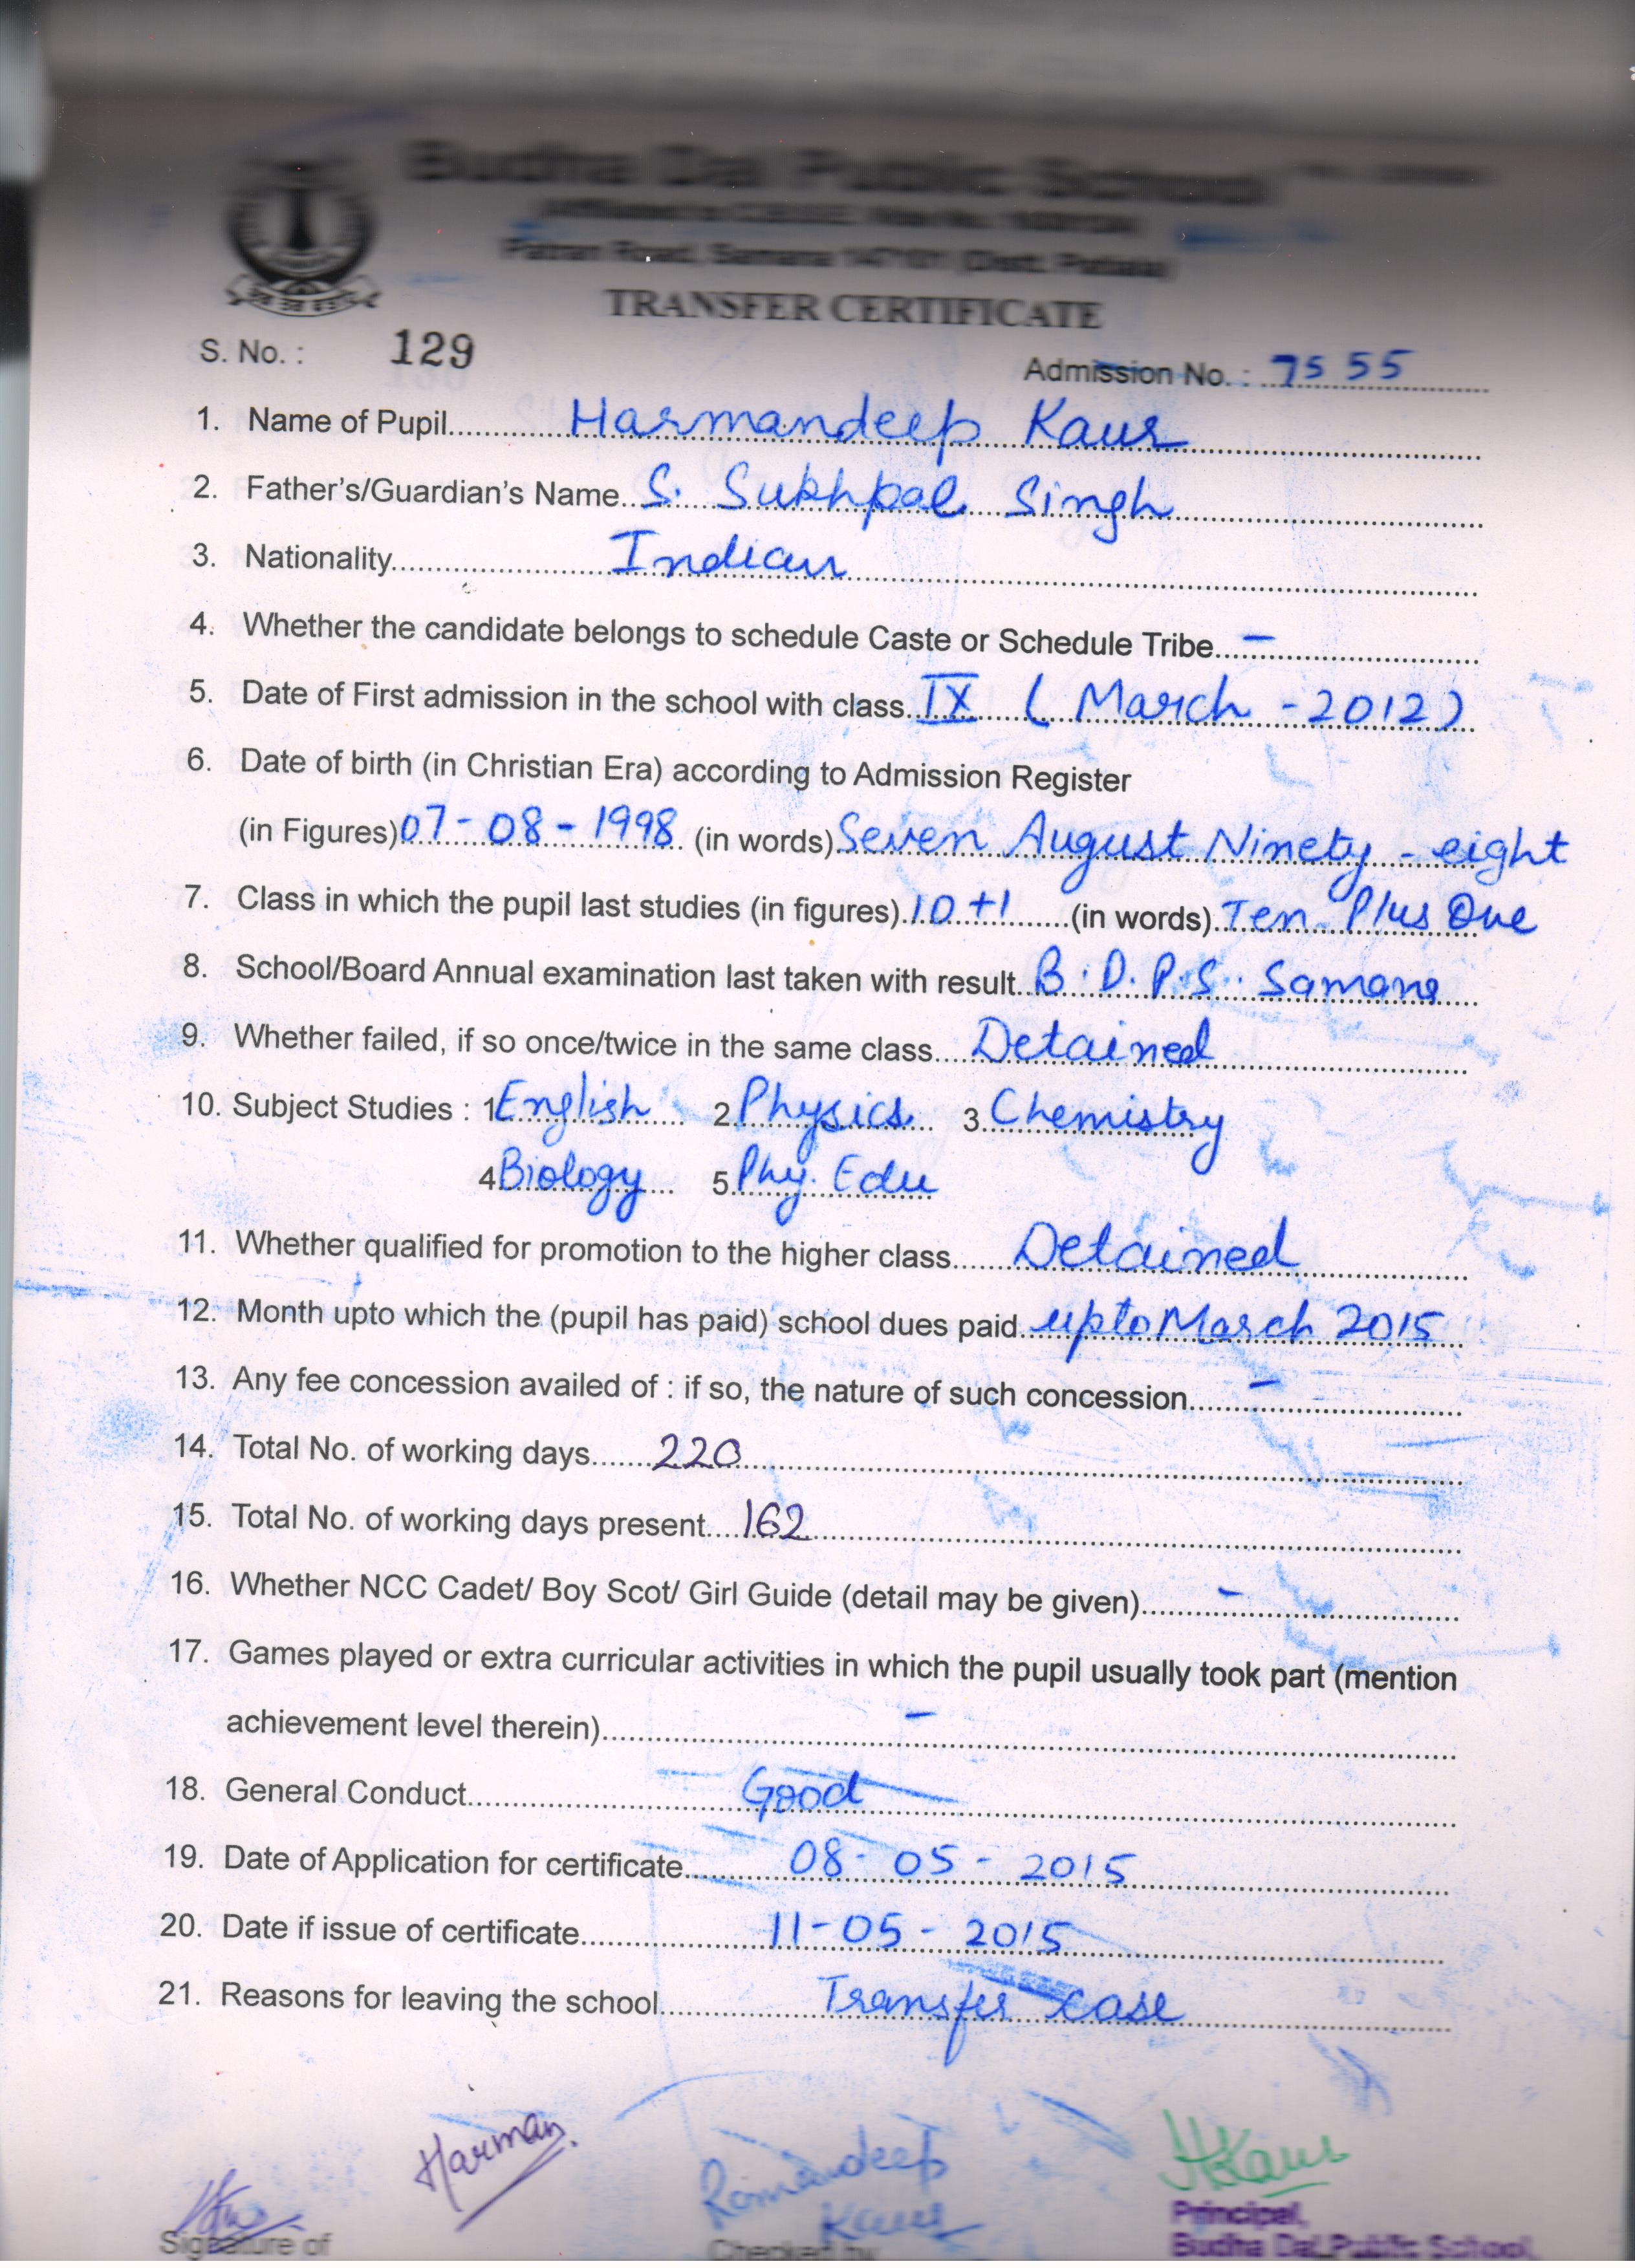 Budha Dal Public School
Patran Road, Samana 147101 (Distt. Patiala)
TRANSFER CERTIFICATE
S. No. : 129
Admission No. : 7555
1. Name of Pupil Harmandeep Kaur
2. Father's/Guardian's Name S. Sukhpal Singh
3. Nationality Indian
4. Whether the candidate belongs to schedule Caste or Schedule Tribe –
5. Date of First admission in the school with class IX ( March - 2012)
6. Date of birth (in Christian Era) according to Admission Register
(in Figures) 07-08-1998 (in words) Seven August Ninety - eight
7. Class in which the pupil last studies (in figures) 10+1 (in words) Ten Plus One
8. School/Board Annual examination last taken with result B.D.P.S. Samana
9. Whether failed, if so once/twice in the same class Detained
10. Subject Studies : 1 English 2 Physics 3 Chemistry
4 Biology 5 Phy. Edu
11. Whether qualified for promotion to the higher class Detained
12. Month upto which the (pupil has paid) school dues paid upto March 2015
13. Any fee concession availed of : if so, the nature of such concession –
14. Total No. of working days 220
15. Total No. of working days present 162
16. Whether NCC Cadet/ Boy Scot/ Girl Guide (detail may be given) –
17. Games played or extra curricular activities in which the pupil usually took part (mention
achievement level therein) –
18. General Conduct Good
19. Date of Application for certificate 08-05-2015
20. Date if issue of certificate 11-05-2015
21. Reasons for leaving the school Transfer case
Harman
Romandeep
Kaur
HKaur
Signature of
Checked by
Principal,
Budha Dal Public School,